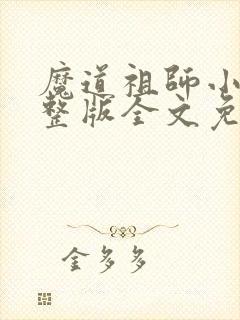 魔道祖師小
整版全文免
金多多